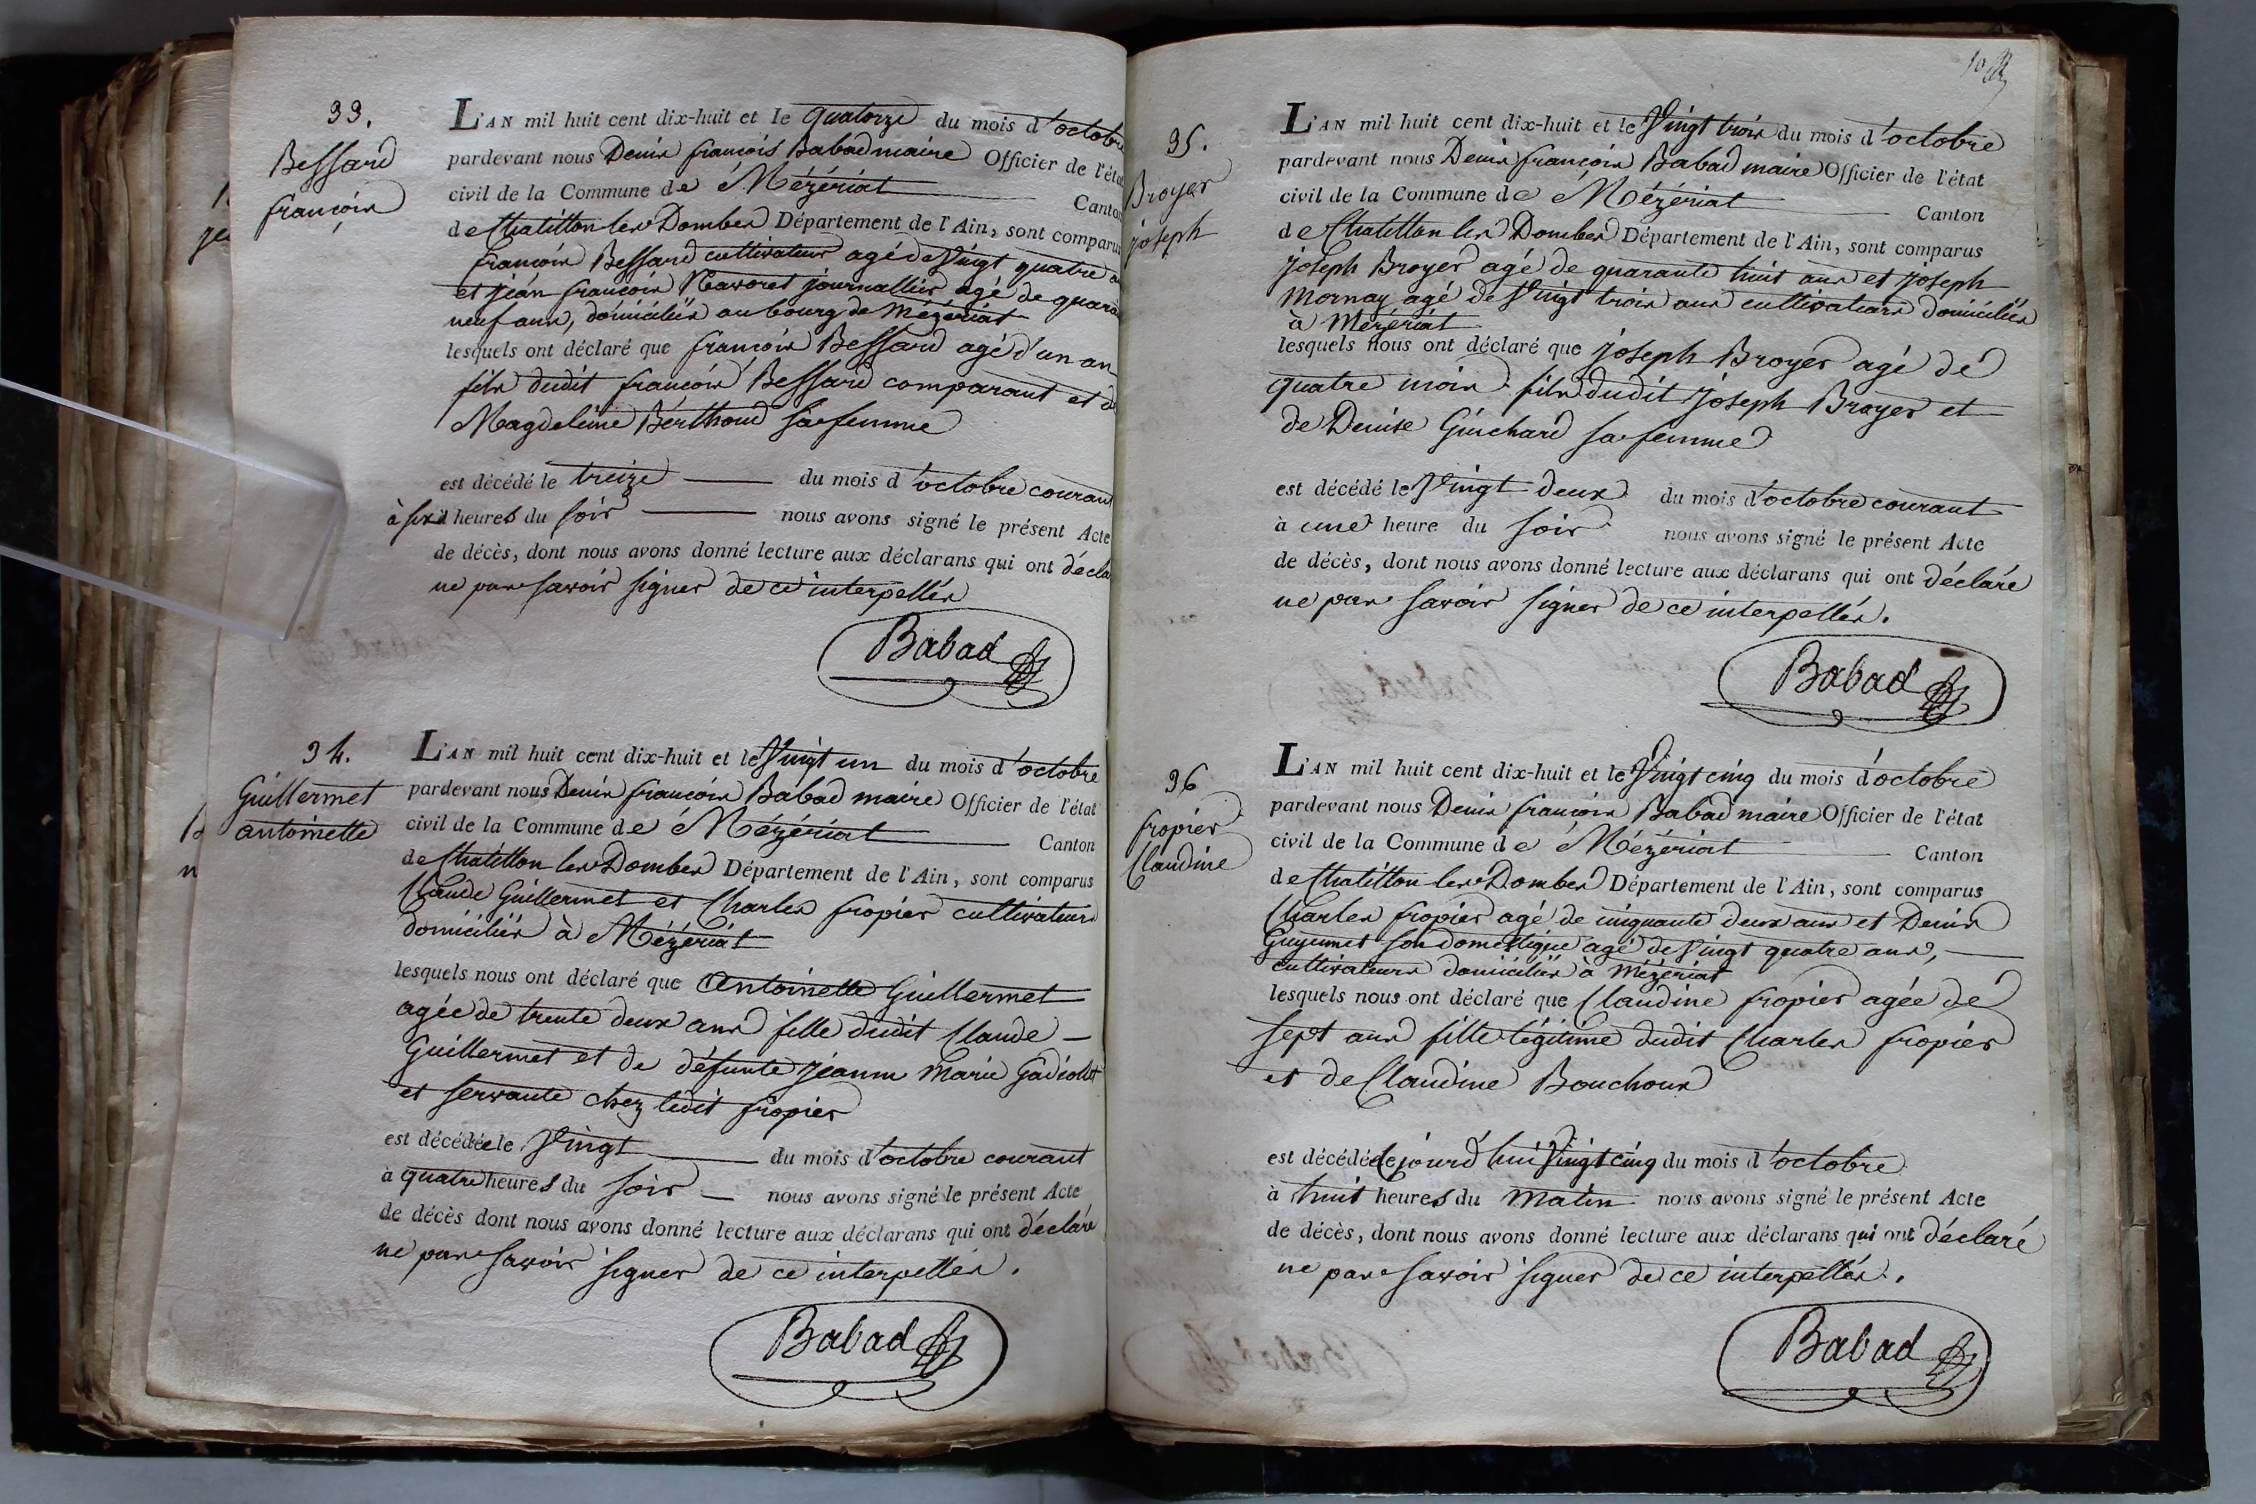 33.
Bessard
françois
L'AN mil huit cent dix-huit et le quatorze du mois d'octobre
pardevant nous Denis françois Babad maire Officier de l'état
civil de la Commune de Mézériat Canton
de Chatillon les Dombes Département de l'Ain, sont comparus
françois Bessard cultivateur agé de Vingt quatre
et jean françois journallier agé de quara
neuf ans, domiciliés au bourg de Mézériat
lesquels ont déclaré que françois Bessard agé d'un an
fils dudit françois Bessard comparant et d
Magdeleine Berthoud sa femme
est décédé le treize du mois d'octobre courant
à six heures du soir nous avons signé le présent Acte
de décès, dont nous avons donné lecture aux déclarans qui ont décla
ne pas savoir signer de ce interpellés
Babad
34.
Guillermet
antoinette
L'AN mil huit cent dix-huit et le Vingt un du mois d'octobre
pardevant nous Denis françois Babad maire Officier de l'état
civil de la Commune de Mézériat Canton
de Chatillon les Dombes Département de l'Ain, sont comparus
Claude Guillermet et Charles fropier cultivateurs
domiciliés à Mézériat
lesquels nous ont déclaré que Antoinette Guillermet
agée de trente deux ans fille dudit Claude
Guillermet et de défunte jeanne Marie Gadiollet
et servante chez ledit fropier
est décédée le Vingt du mois d'octobre courant
à quatre heures du soir nous avons signé le présent Acte
de décès dont nous avons donné lecture aux déclarans qui ont déclaré
ne pas savoir signer de ce interpellés.
Babad
35.
Broyer
joseph
L'AN mil huit cent dix-huit et le Vingt trois du mois d'octobre
pardevant nous Denis françois Babad maire Officier de l'état
civil de la Commune de Mézériat Canton
de Chatillon les Dombes Département de l'Ain, sont comparus
joseph Broyer agé de quarante huit ans et joseph
Mornay agé de Vingt trois ans cultivateurs domiciliés
à Mézériat
lesquels nous ont déclaré que joseph Broyer agé de
quatre mois fils dudit joseph Broyer et
de Denise Guichard sa femme
est décédé le Vingt deux du mois d'octobre courant
à une heure du soir nous avons signé le présent Acte
de décès, dont nous avons donné lecture aux déclarans qui ont déclaré
ne pas savoir signer de ce interpellés.
Babad
36
fropier
Claudine
L'AN mil huit cent dix-huit et le Vingt cinq du mois d'octobre
pardevant nous Denis françois Babad maire Officier de l'état
civil de la Commune de Mézériat Canton
de Chatillon les Dombes Département de l'Ain, sont comparus
Charles fropier agé de cinquante deux ans et Denis
Guyennet son domestique agé de Vingt quatre ans,
cultivateurs domiciliés à Mézériat
lesquels nous ont déclaré que Claudine fropier agée de
sept ans fille légitime dudit Charles fropier
et de Claudine Bouchoux
est décédée cejourd'hui Vingt cinq du mois d'octobre
à huit heures du matin nous avons signé le présent Acte
de décès, dont nous avons donné lecture aux déclarans qui ont déclaré
ne pas savoir signer de ce interpellés.
Babad